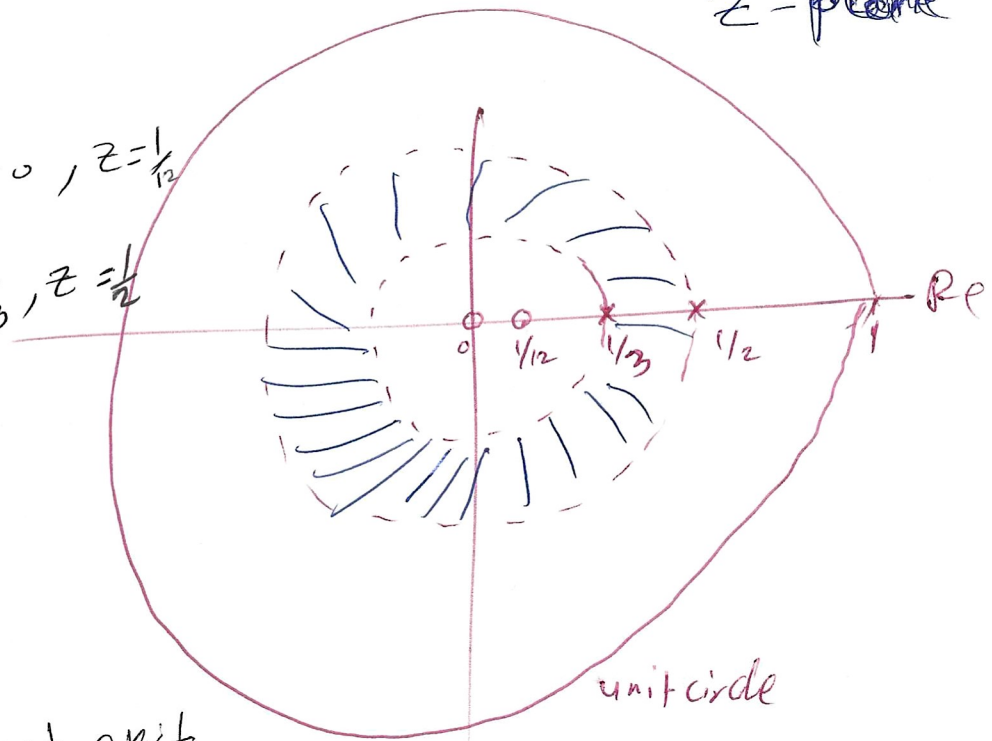 z-plane
0, z=1/12
3, z=1/2
Re
0 1/12 1/3 1/2 1
unit circle
unit